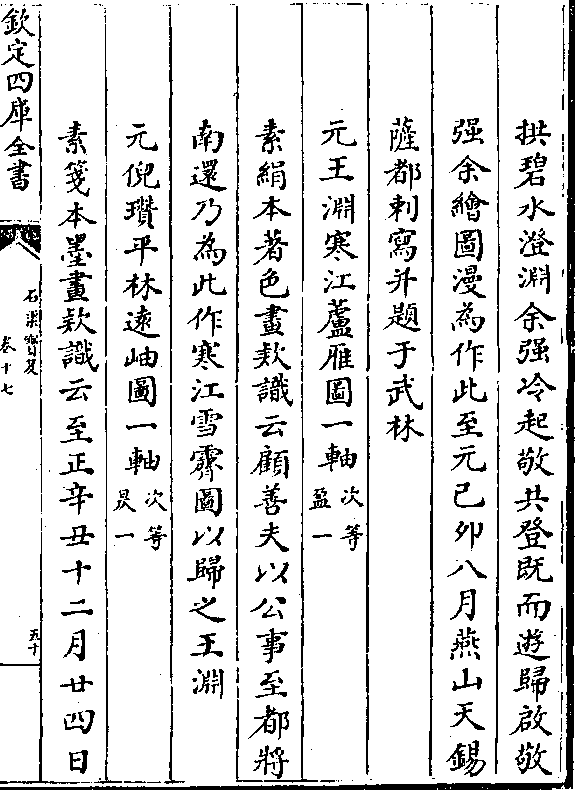 拱碧水澄淵余强冷起敬共登既而遊歸啟敬
强余繪圖漫為作此至元己卯八月燕山天錫
薩都剌寫并題于武林
元王淵寒江蘆雁圖一軸次等盈一
素絹本著色畫欵識云顧善夫以公事至都將
南還乃為此作寒江雪霽圖以歸之王淵
元倪瓚平林逺岫圖一軸次等昃一
素箋本墨畫欵識云至正辛丑十二月廿四日
欽定四庫全書
石渠寳笈
卷十七
五十